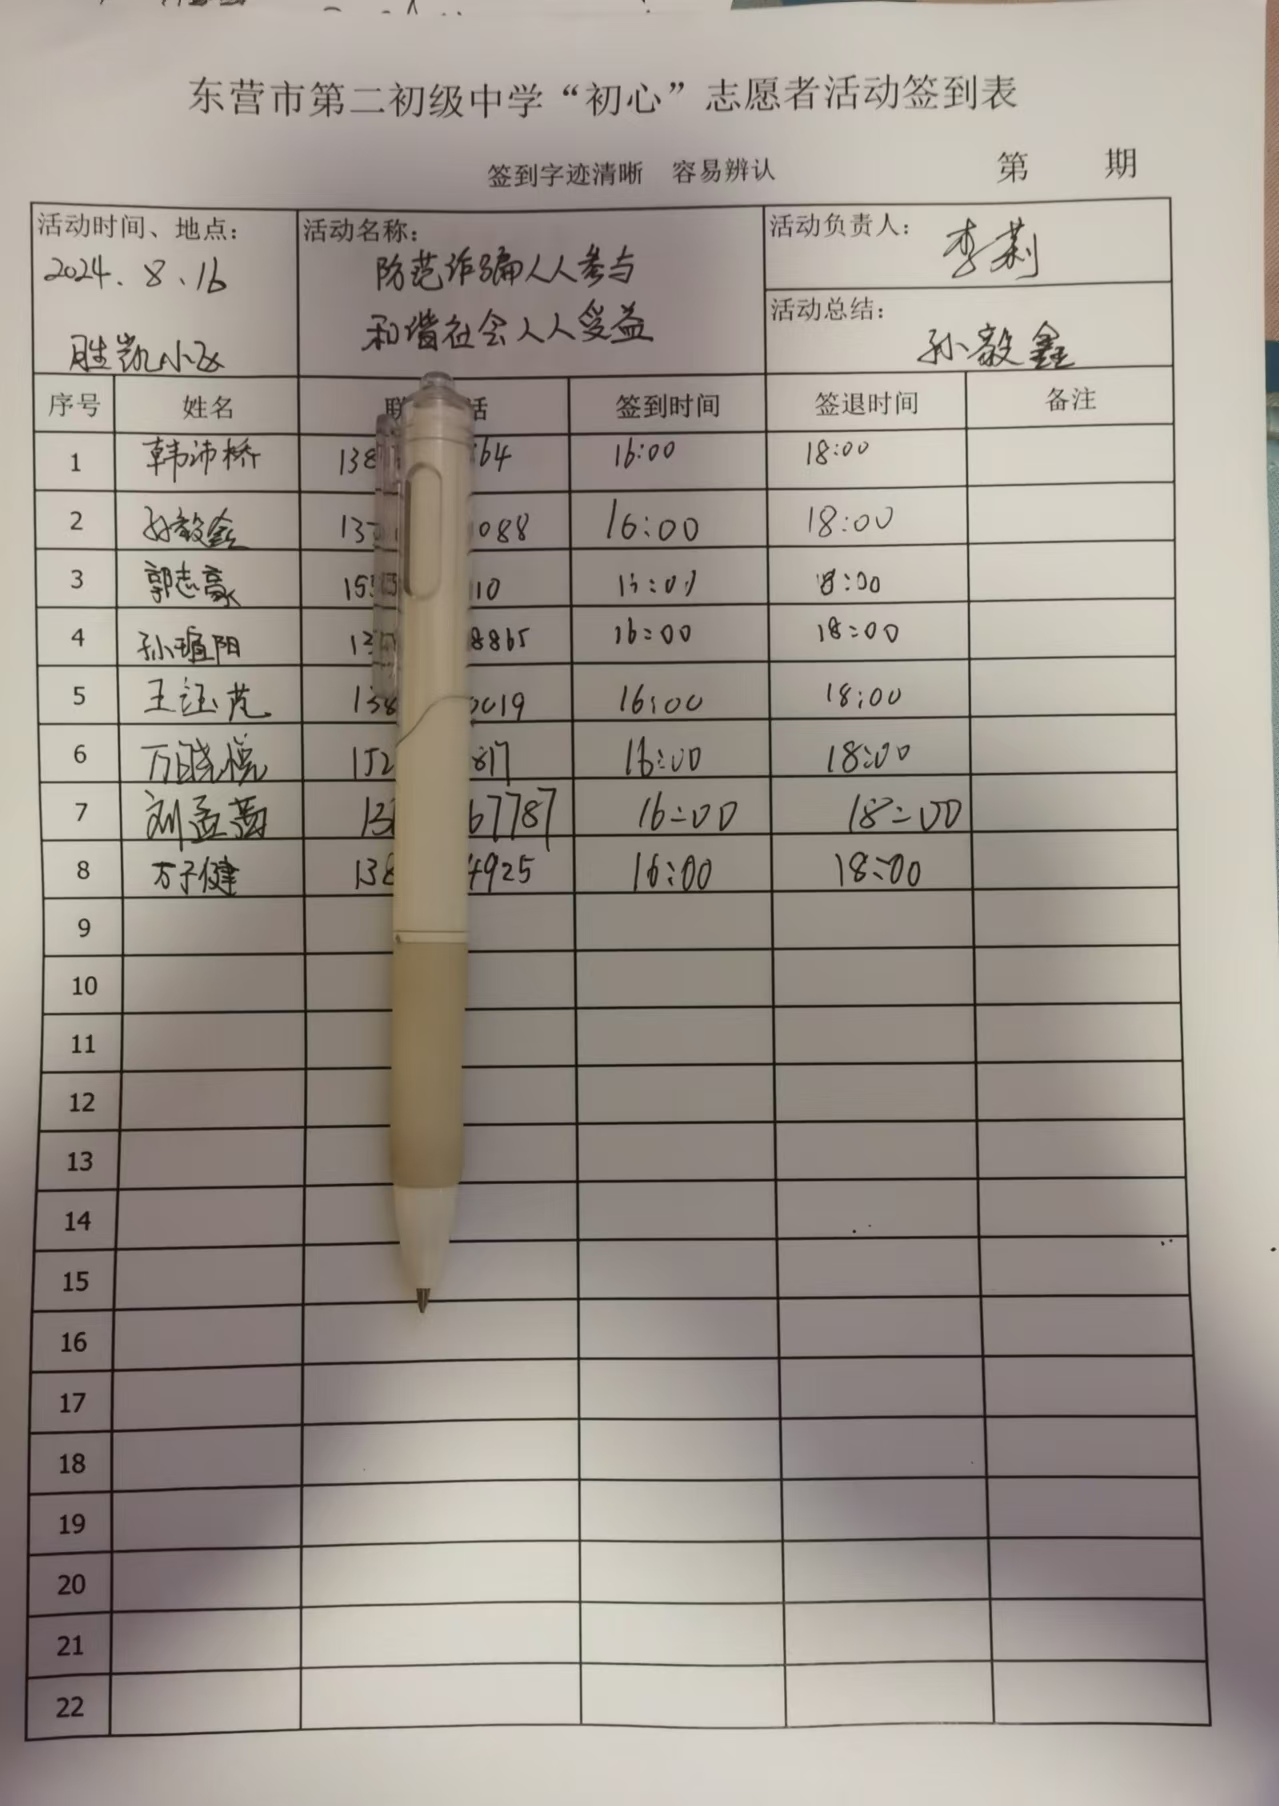 东营市第二初级中学“初心”志愿者活动签到表
签到字迹清晰 容易辨认 第 期
活动时间、地点: 活动名称: 活动负责人: 李莉
2024.8.16 防范诈骗人人参与
和谐社会人人受益 活动总结: 孙毅鑫
胜凯小区
序号 姓名 联 话 签到时间 签退时间 备注
1 韩沛桥 138 64 16:00 18:00
2 孙毅鑫 13 088 16:00 18:00
3 郭志豪 15 10 18:00
4 孙 阳 13 8865 16:00 18:00
5 王 138 0019 16:00 18:00
6 万晓悦 152 817 16:00 18:00
7 刘孟 13 67787 16:00 18:00
8 万子健 138 4925 16:00 18:00
9
10
11
12
13
14
15
16
17
18
19
20
21
22